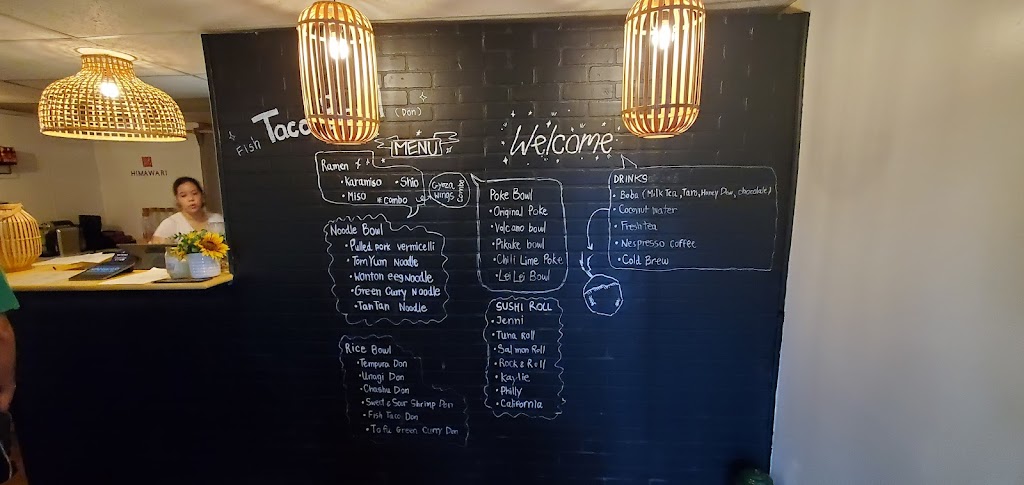 Fish Taco
(Don)
HIMAWARI
MENU
Ramen
• Karamiso • Shio
• Miso * Combo
Gyoza
Wings
Combo
Noodle Bowl
• Pulled pork vermicelli
• Tom Yum Noodle
• Wonton egg Noodle
• Green Curry Noodle
• Tan Tan Noodle
Rice Bowl
• Tempura Don
• Unagi Don
• Chashu Don
• Sweet & Sour Shrimp Don
• Fish Taco Don
• Tofu Green Curry Don
Welcome
Poke Bowl
• Original Poke
• Volcano bowl
• Pikake bowl
• Chili Lime Poke
• Lei Lei Bowl
SUSHI ROLL
• Jenni
• Tuna Roll
• Salmon Roll
• Rock & Roll
• Kaylie
• Philly
• California
DRINKS
• Boba (Milk Tea, Taro, Honey Dew, chocolate)
• Coconut water
• Fresh tea
• Nespresso coffee
• Cold Brew